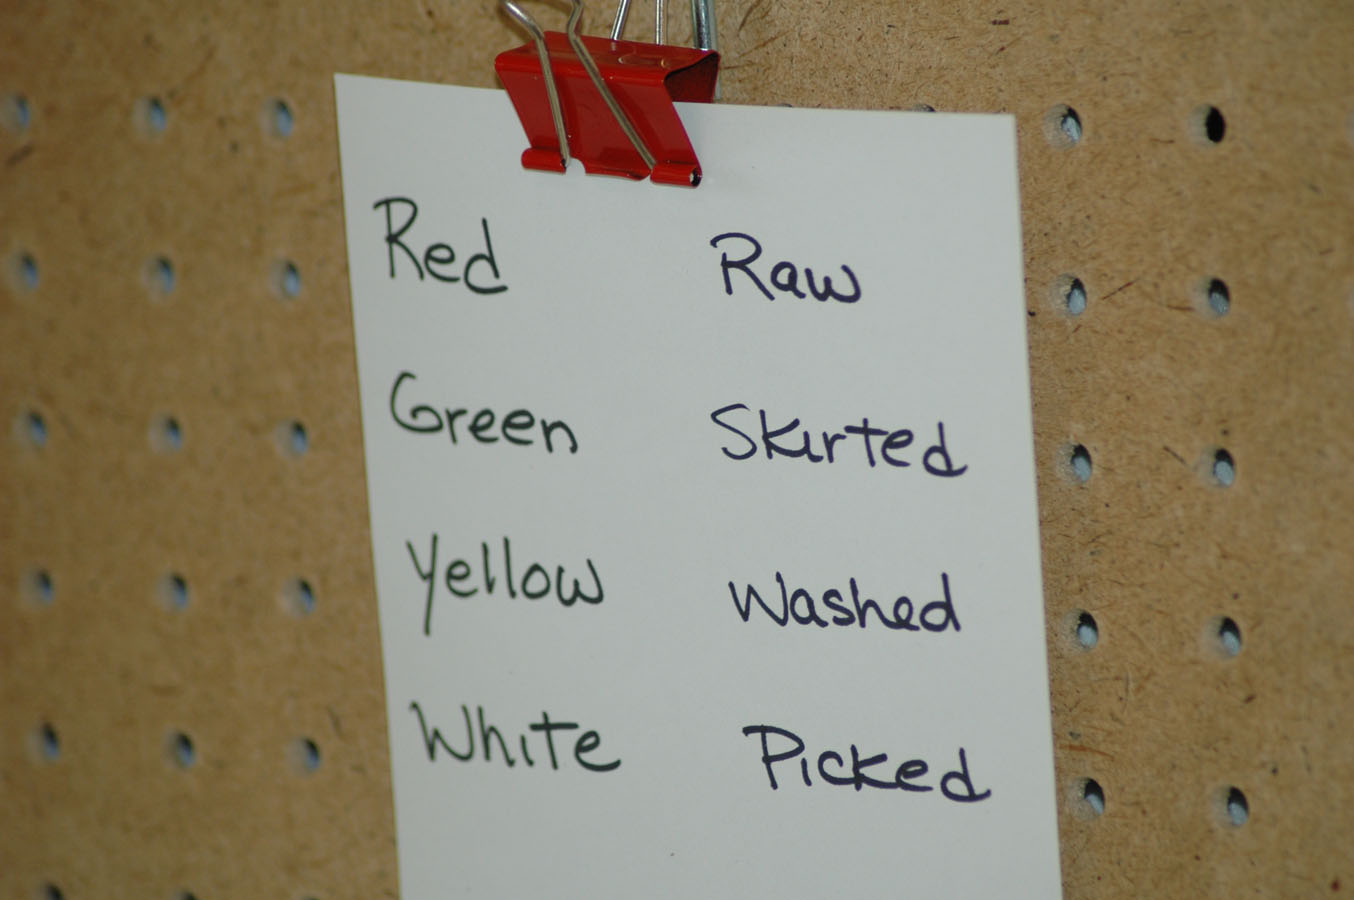 Red Raw
Green Skirted
Yellow Washed
White Picked